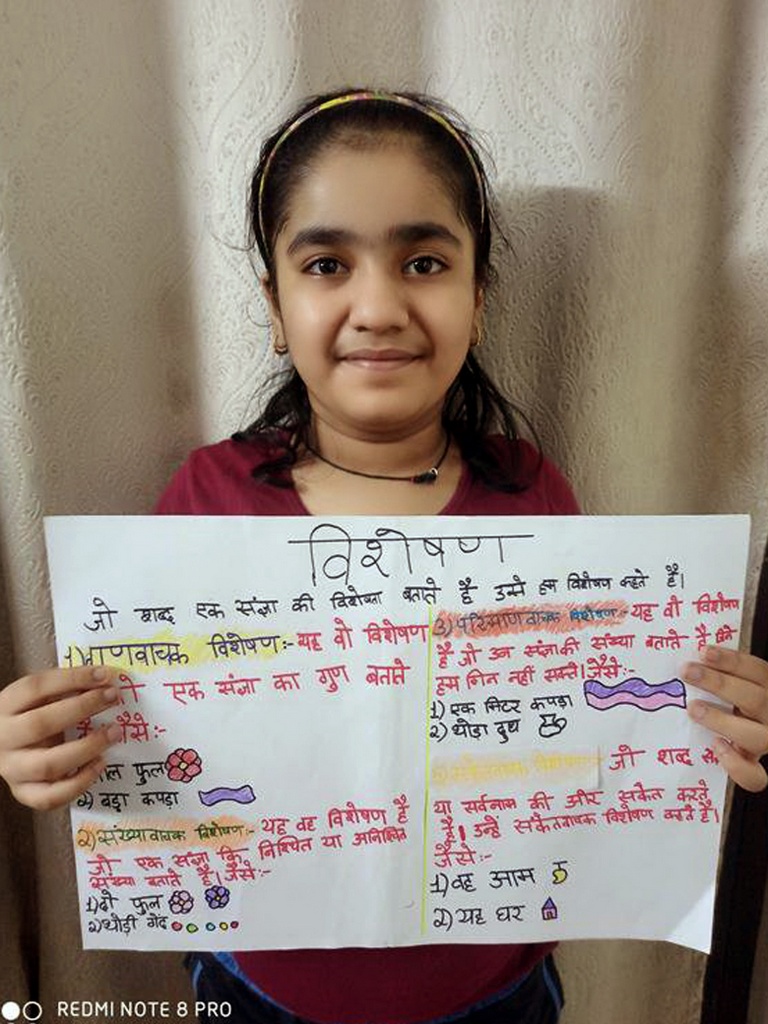 विशेषण
जो शब्द एक संज्ञा की विशेषता बताते है उसे हम विशेषण कहते है।
1) गुणवाचक विशेषण:- यह वो विशेषण
एक संज्ञा का गुण बताते
जैसे:-
फुल
2) बड़ा कपड़ा
2) संख्यावाचक विशेषण:- यह वह विशेषण है
जो एक संज्ञा कि निश्चित या अनिश्चित
संख्या बताते है। जैसे:-
1) दो फुल
2) थोड़ी गेंद
3) परिमाणवाचक विशेषण:- यह वो विशेषण
है जो उन संज्ञा की संख्या बताते है जिन्हे
हम गिन नहीं सकते। जैसे:-
1) एक मिटर कपड़ा
2) थोडा दुध
संकेतवाचक विशेषण:- जो शब्द सं
या सर्वनाम की और संकेत करते
है। उन्हे संकेतवाचक विशेषण कहते है।
जैसे:-
1) वह आम
2) यह घर
REDMI NOTE 8 PRO